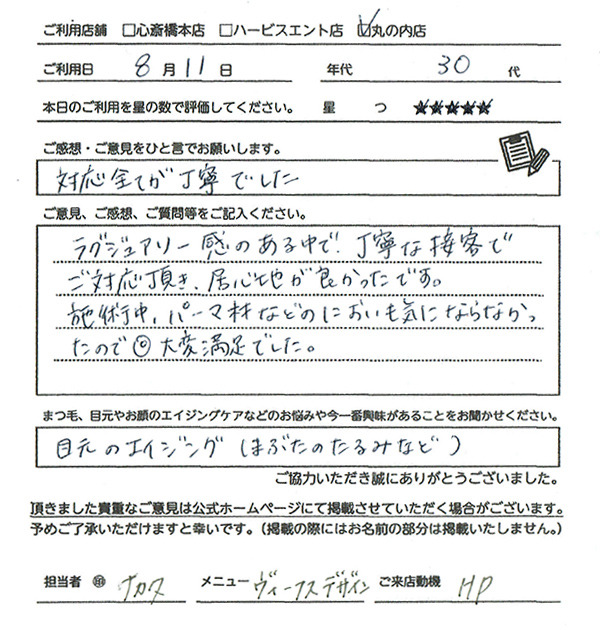 ご利用店舗 □心斎橋本店 □ハービスエント店 ☑丸の内店
ご利用日 8月11日 年代 30代
本日のご利用を星の数で評価してください。 星 つ ★★★★★
ご感想・ご意見をひと言でお願いします。
対応全てが丁寧でした
ご意見、ご感想、ご質問等をご記入ください。
ラグジュアリー感のある中で、丁寧な接客で
ご対応頂き、居心地が良かったです。
施術中、パーマ材などのにおいも気にならなかっ
たので◎大変満足でした。
まつ毛、目元やお顔のエイジングケアなどのお悩みや今一番興味があることをお聞かせください。
目元のエイジング(まぶたのたるみなど)
ご協力いただき誠にありがとうございました。
頂きました貴重なご意見は公式ホームページにて掲載させていただく場合がございます。
予めご了承いただけますと幸いです。(掲載の際にはお名前の部分は掲載いたしません。)
担当者 ナカタ メニュー デザイン ご来店動機 HP